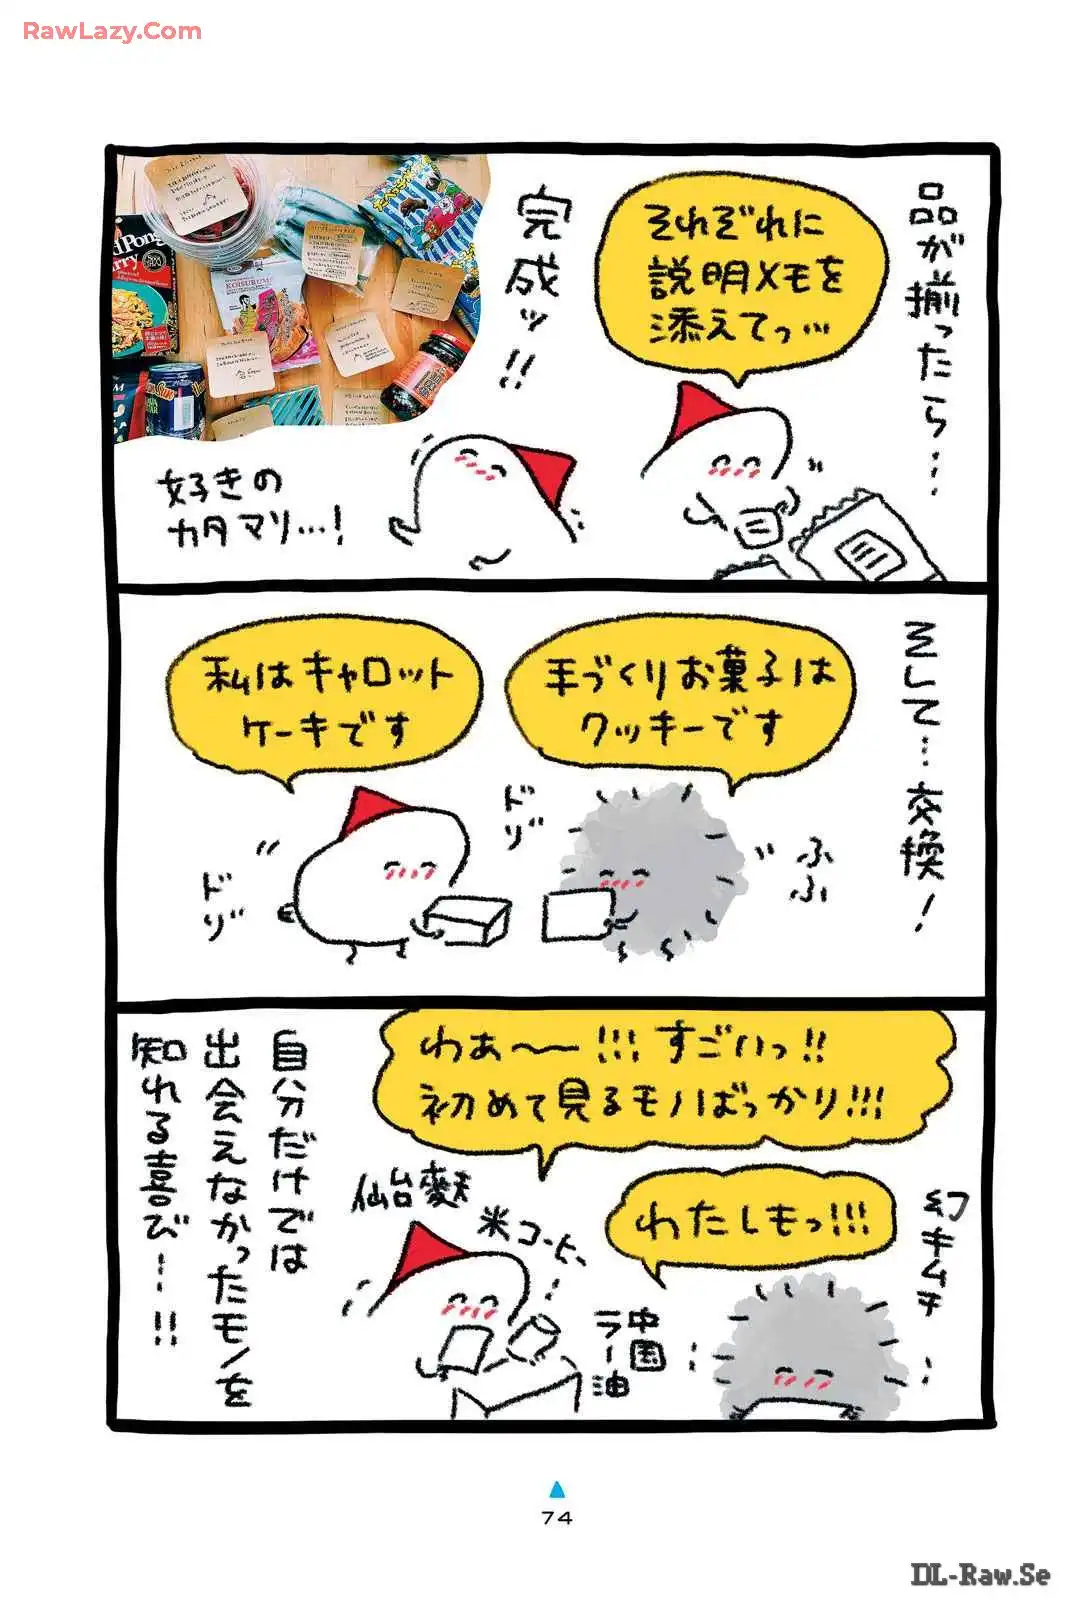 RawLazy.Com
品が揃ったら…
それぞれに
説明メモを
添えてっ…
完成ッ!!
KOISURU
好きの
カタマリ…!
そして…交換!
手づくりお菓子は
クッキーです
ドゾ
ふふ
私はキャロット
ケーキです
ドゾ
わあ〜ー!!!すごいっ!!
初めて見るモノばっかり!!!
幻キムチ…
わたしもっ!!!
中国
ラー油…
米コーヒー…
仙台麩
自分だけでは
出会えなかったモノを
知れる喜び…!!
74
DL-Raw.Se